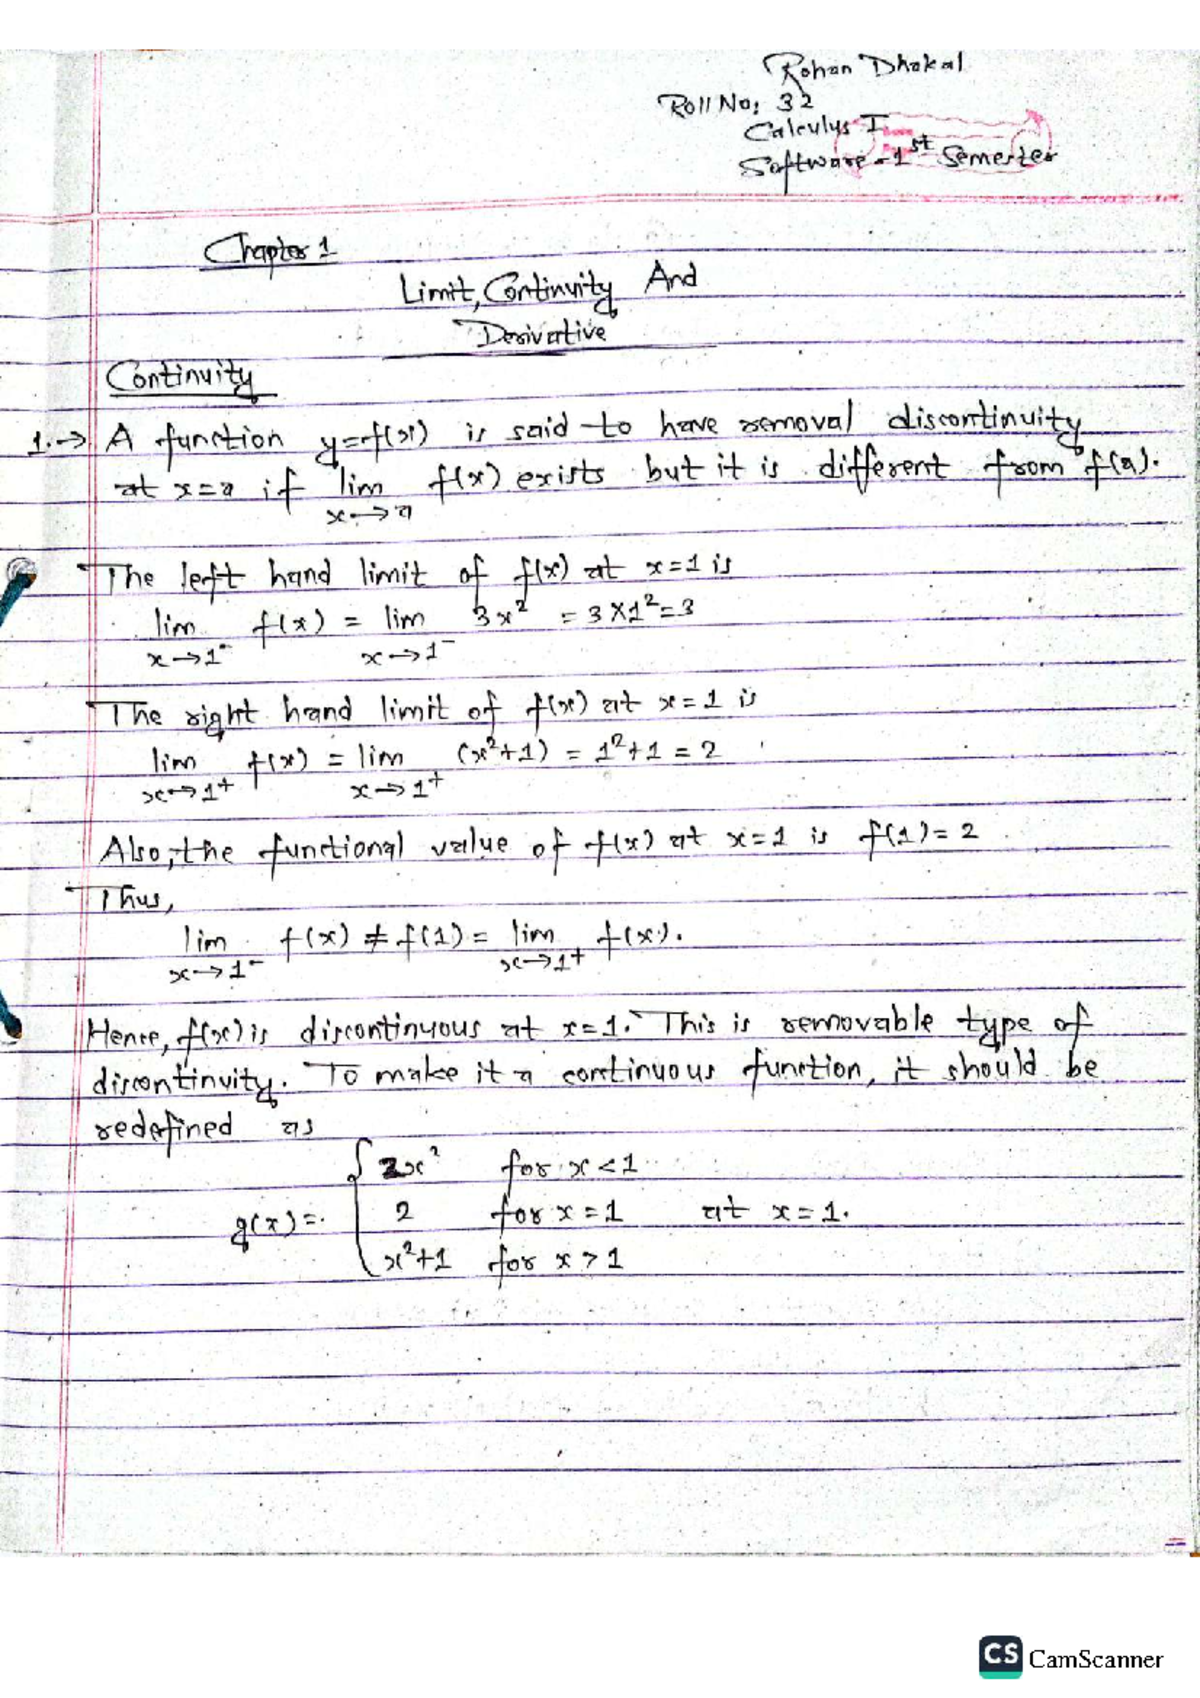 Rohan Dhakal
Roll No: 32
Calculus I
Software - 1st Semester
Chapter 1
Limit, Continuity And
Derivative
Continuity
1. → A function y=f(x) is said to have removal discontinuity
at x=a if lim f(x) exists but it is different from f(a).
x→a
The left hand limit of f(x) at x=1 is
lim f(x) = lim 3x² = 3×1²=3
x→1⁻ x→1⁻
The right hand limit of f(x) at x=1 is
lim f(x) = lim (x²+1) = 1²+1 = 2
x→1⁺ x→1⁺
Also, the functional value of f(x) at x=1 is f(1)=2
Thus,
lim f(x) ≠ f(1) = lim f(x).
x→1⁻ x→1⁺
Hence, f(x) is discontinuous at x=1. This is removable type of
discontinuity. To make it a continuous function, it should be
redefined as
2x² for x<1
g(x) = { 2 for x=1 at x=1.
x²+1 for x>1
CS CamScanner